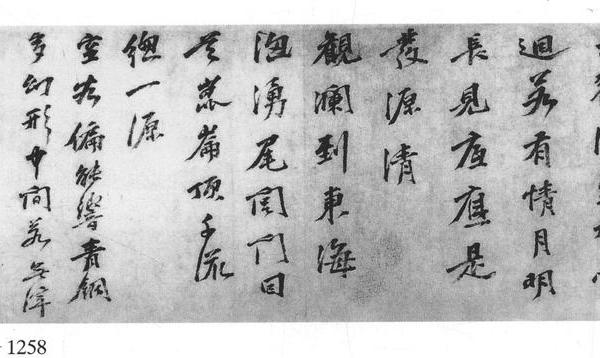 迴若有情月明
長見底應是
發源清
観瀾到東海
洶湧尾閭門回
首崑崙頂千流
總一源
空谷偏能響青銅
多幻形中間若無
1258